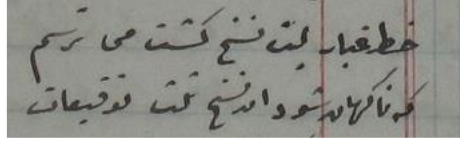 خط غبار لبت نسخ گشت می ترسم
که ناگهان شود از نسخ ثلث توقیعات